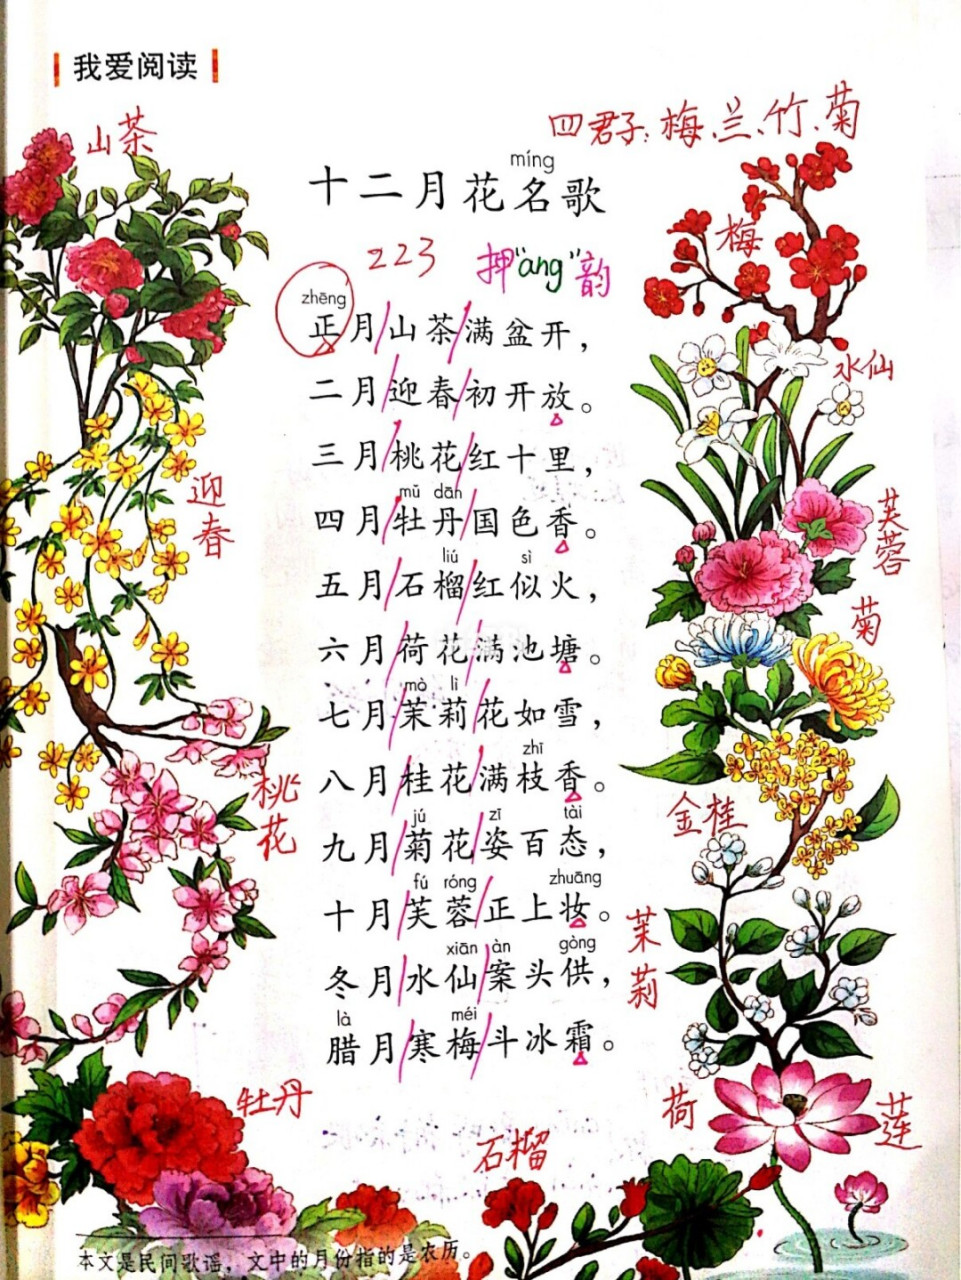 我爱阅读
山茶
四君子：梅、兰、竹、菊
míng
十二月花名歌
梅
223 押"ang"韵
zhēng
正月/山茶/满盆开，
水仙
二月/迎春/初开放。
三月/桃花/红十里，
迎春
mǔ dān
四月/牡丹/国色香。
芙蓉
liú sì
五月/石榴/红似火，
菊
六月/荷花/满池塘。
mò lì
七月/茉莉/花如雪，
zhī
八月/桂花/满枝香。
桃花
金桂
jú zī tài
九月/菊花/姿百态，
fú róng zhuāng
十月/芙蓉/正上妆。
茉莉
xiān àn gòng
冬月/水仙/案头供，
là méi
腊月/寒梅/斗冰霜。
牡丹
荷
莲
石榴
本文是民间歌谣，文中的月份指的是农历。